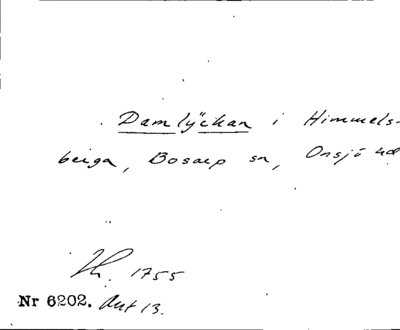 Damlÿckan i Himmels-
berga, Bosarp sn, Onsjö hd
1755
Nr 6202. Akt 13.